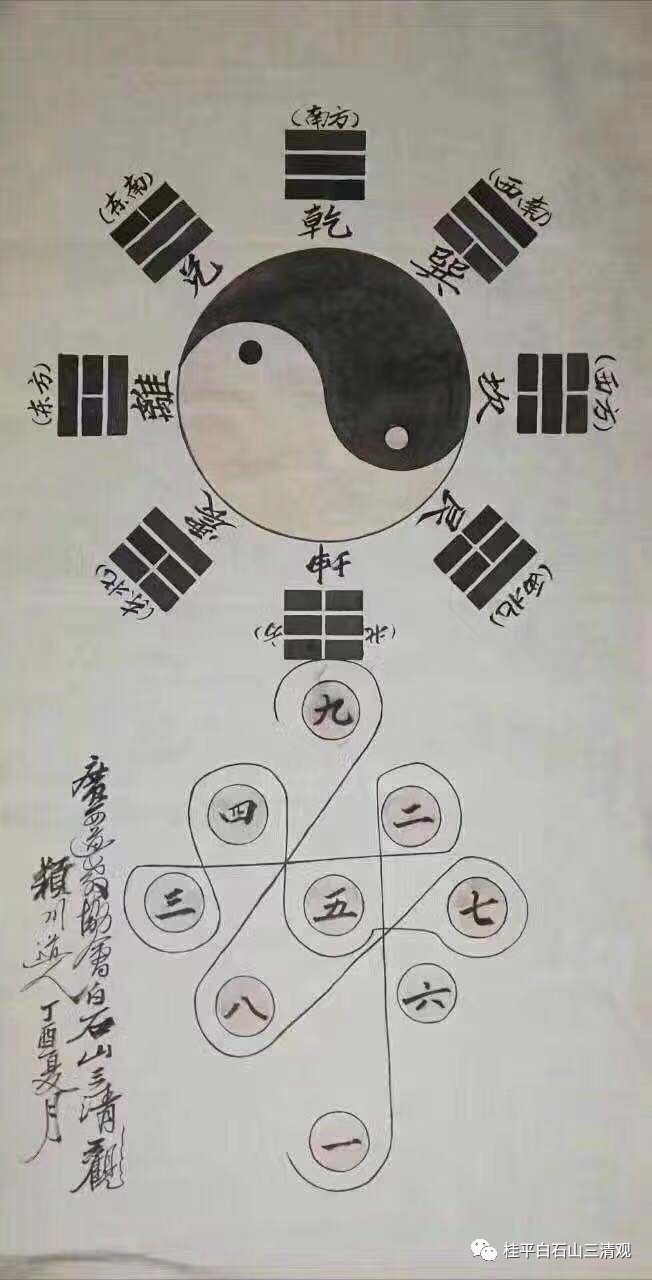 (南方)
乾
(东南)
兑
(西南)
巽
(东方)
離
坎
(西方)
震
(东北)
艮
(西北)
坤
(北方)
九
四
二
三
五
七
八
六
一
廣西道教協會白石山三清觀
穎川道人
丁酉夏月
桂平白石山三清观